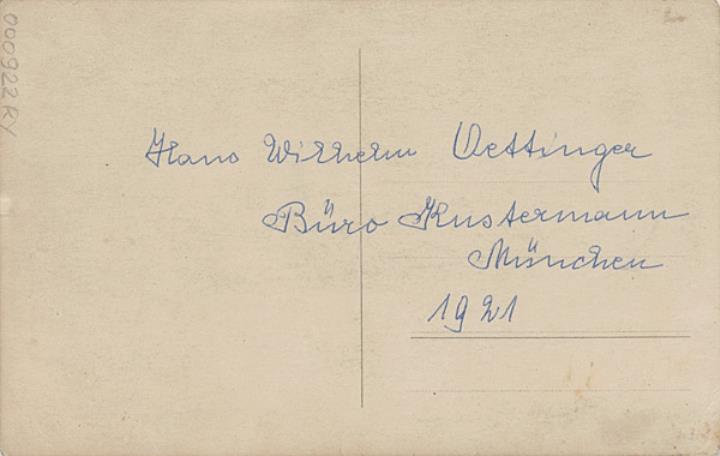 000922RY
Hans Wilhelm Oettinger
Büro Kustermann
München
1921